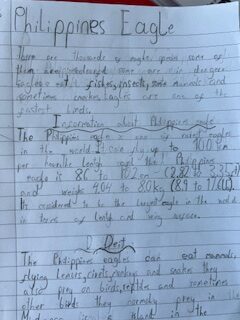 Philippines Eagle
There are thousands of eagle species some of
them are in danger
Eagles eat fishes, insects, some mammals and
sometimes snakes. Eagles are one of the
fastest birds.
Information about Philippines eagle
The Philippines eagle is one of rarest eagles
in the world it can fly up to 100 km
per hour the length of the Philippines
eagle is 86 to 102 cm (2.82 to 3.35 ft)
and weighs 4.04 to 8.0 kg (8.9 to 17.6
It's considered to be the largest eagle in the world
in terms of length and wing surface.
Diet
The Philippines eagles can eat mammals,
flying lemurs, civets, monkeys and snakes they
also prey on birds, reptiles and sometimes
other birds they normally prey in the
island in the